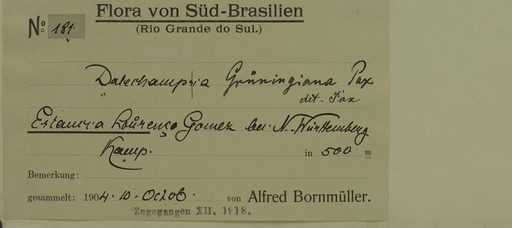 Flora von Süd-Brasilien
(Rio Grande do Sul.)
No 181.
Dalechampsia Grüningiana Pax
det. Pax
Estancia Lourenço Gomez bei N. Württemberg
Kamp. in 500 m
Bemerkung:
gesammelt: 1904. 10. Octob. von Alfred Bornmüller.
Zugegangen XII. 1918.